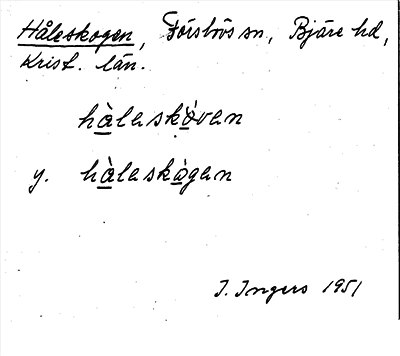 Håleskogen, Förslövs sn, Bjäre hd,
Krist. län.
hàleskòven
y. hàleskògen
I. Ingers 1951